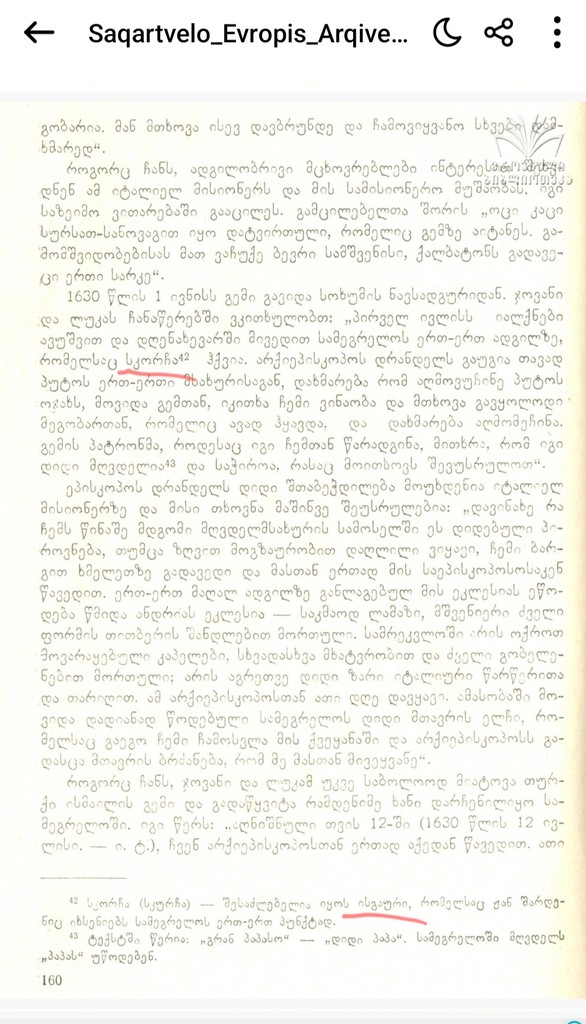 Saqartvelo_Evropis_Arqive...
გობარია. მან მთხოვა ისევ დავბრუნდე და ჩამოვიყვანო სხვები დამ-
ხმარედ“.
როგორც ჩანს, ადგილობრივი მცხოვრებლები
დნენ ამ იტალიელ მისიონერს და მის სამისიონერო მუშაობას. იგი
საზეიმო ვითარებაში გააცილეს. გამცილებელთა შორის „ოცი კაცი
სურსათ-სანოვაგით იყო დატვირთული, რომელიც გემზე აიტანეს. გა-
მომშვიდობებისას მათ ვაჩუქე ბევრი სამშვენისი, ქალბატონს გადავე-
ცი ერთი სარკე“.
1630 წლის 1 ივნისს გემი გავიდა სოხუმის ნავსადგურიდან. ჯოვანი
და ლუკას ჩანაწერებში ვკითხულობთ: „პირველ ივლისს იალქნები
ავუშვით და დღენახევარში მივედით სამეგრელოს ერთ-ერთ ადგილზე,
რომელსაც სკორჩა⁴² ჰქვია. არქიეპისკოპოს დრანდელს გაუგია თავად
პუტოს ერთ-ერთი მსახურისაგან, დახმარება რომ აღმოვუჩინე პუტოს
ოჯახს, მოვიდა გემთან, იკითხა ჩემი ვინაობა და მთხოვა გავყოლოდი
მეგობართან, რომელიც ავად ჰყავდა, და დახმარება აღმომეჩინა.
გემის პატრონმა, როდესაც იგი ჩემთან წარადგინა, მითხრა, რომ იგი
დიდი მღვდელია⁴³ და საჭიროა, რასაც მოითხოვს შევუსრულოთ“.
ეპისკოპოს დრანდელს დიდი შთაბეჭდილება მოუხდენია იტალიელ
მისიონერზე და მისი თხოვნა მაშინვე შეუსრულებია: „დავინახე რა
ჩემს წინაშე მდგომი მღვდელმსახურის სამოსელში ეს დიდებული პი-
როვნება, თუმცა ზღვით მოგზაურობით დაღლილი ვიყავი, ჩემი ბარ-
გით ხმელეთზე გადავედი და მასთან ერთად მის საეპისკოპოსოსაკენ
წავედით. ერთ-ერთ მაღალ ადგილზე განლაგებულ მის ეკლესიას ეწო-
დება წმიდა ანდრიას ეკლესია — საკმაოდ ლამაზი, მშვენიერი ძველი
ფორმის თითბერის შანდლებით მორთული. სამრეკვლოში არის ოქროთ
მოვარაყებული კაპელები, სხვადასხვა მხატვრობით და ძველი გობელე-
ნებით მორთული; არის აგრეთვე დიდი ზარი იტალიური წარწერითა
და თარიღით. ამ არქიეპისკოპოსთან ათი დღე დავყავი. ამასობაში მო-
ვიდა დადიანად წოდებული სამეგრელოს დიდი მთავრის ელჩი, რო-
მელსაც გაეგო ჩემი ჩამოსვლა მის ქვეყანაში და არქიეპისკოპოსს გა-
დასცა მთავრის ბრძანება, რომ მე მასთან მივეყვანე“.
როგორც ჩანს, ჯოვანი და ლუკამ უკვე საბოლოოდ მიატოვა თურ-
ქი ისმაილის გემი და გადაწყვიტა რამდენიმე ხანი დარჩენილიყო სა-
მეგრელოში. იგი წერს: „აღნიშნული თვის 12-ში (1630 წლის 12 ივ-
ლისი. — ი. ტ.), ჩვენ არქიეპისკოპოსთან ერთად აქედან წავედით. ათი
⁴² სკორჩა (სკურჩა) — შესაძლებელია იყოს ისგაური, რომელსაც ჟან შარდე-
ნიც იხსენიებს სამეგრელოს ერთ-ერთ პუნქტად.
⁴³ ტექსტში წერია: „გრან პაპასო“ — „დიდი პაპა“. სამეგრელოში მღვდელს
„პაპას“ უწოდებენ.
160